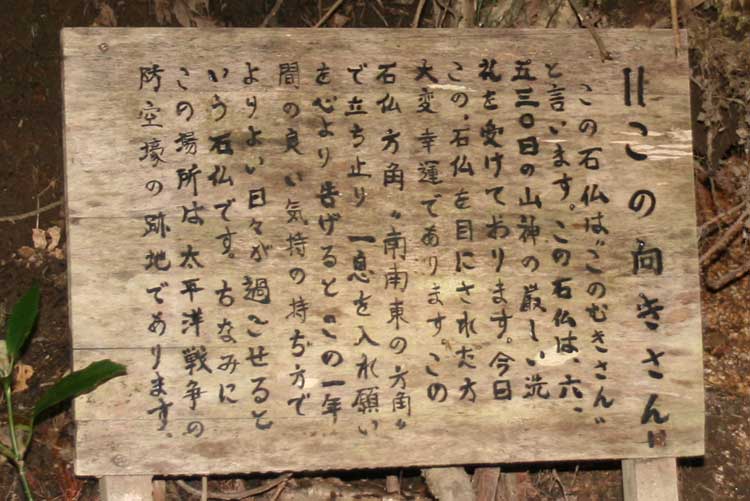 〃この向きさん〃
この石仏は〃このむきさん〃
と言います。この石仏は、六、
五三〇日の山神の厳しい洗
礼を受けております。今日
この、石仏を目にされた方
大変幸運であります。この
石仏方角〃南南東の方角〃
で立ち止り一息を入れ願い
を心より告げるとこの一年
間の良い気持の持ち方で
よりよい日々が過ごせると
いう石仏です。ちなみに
この場所は太平洋戦争の
防空壕の跡地であります。